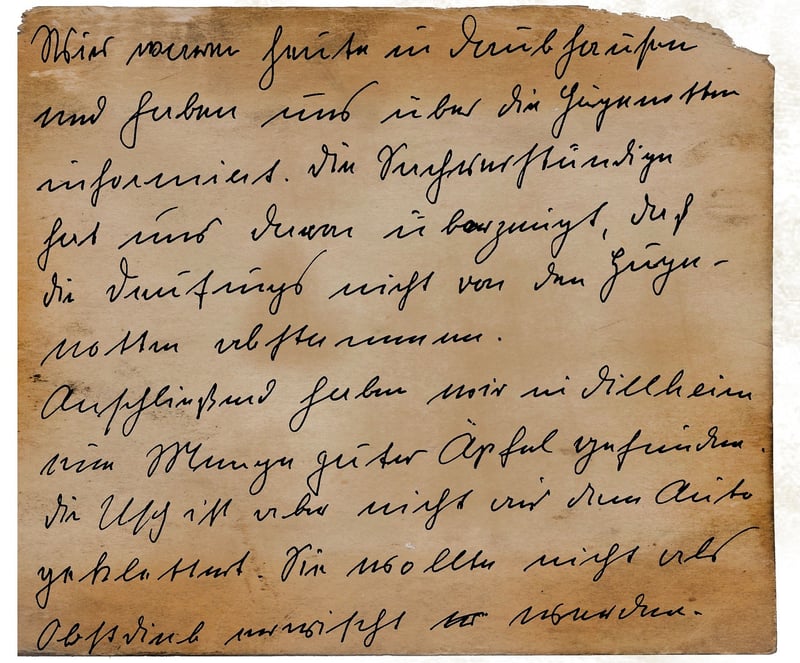 Wir waren heute in Daubhausen
und haben uns über die Hugenotten
informiert. Die Sachverständige
hat uns davon überzeugt, daß
die Daufings nicht von den Huge-
notten abstammen.
Anschließend haben wir in Dillheim
eine Menge guter Äpfel gefunden.
Die Usch ist aber nicht auf dem Auto
geklettert. Sie wollte nicht als
Obstdieb erwischt werden.